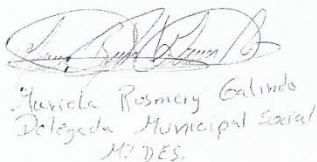 Mariela Rosmery Galindo
Delegada Municipal Social
MIDES.